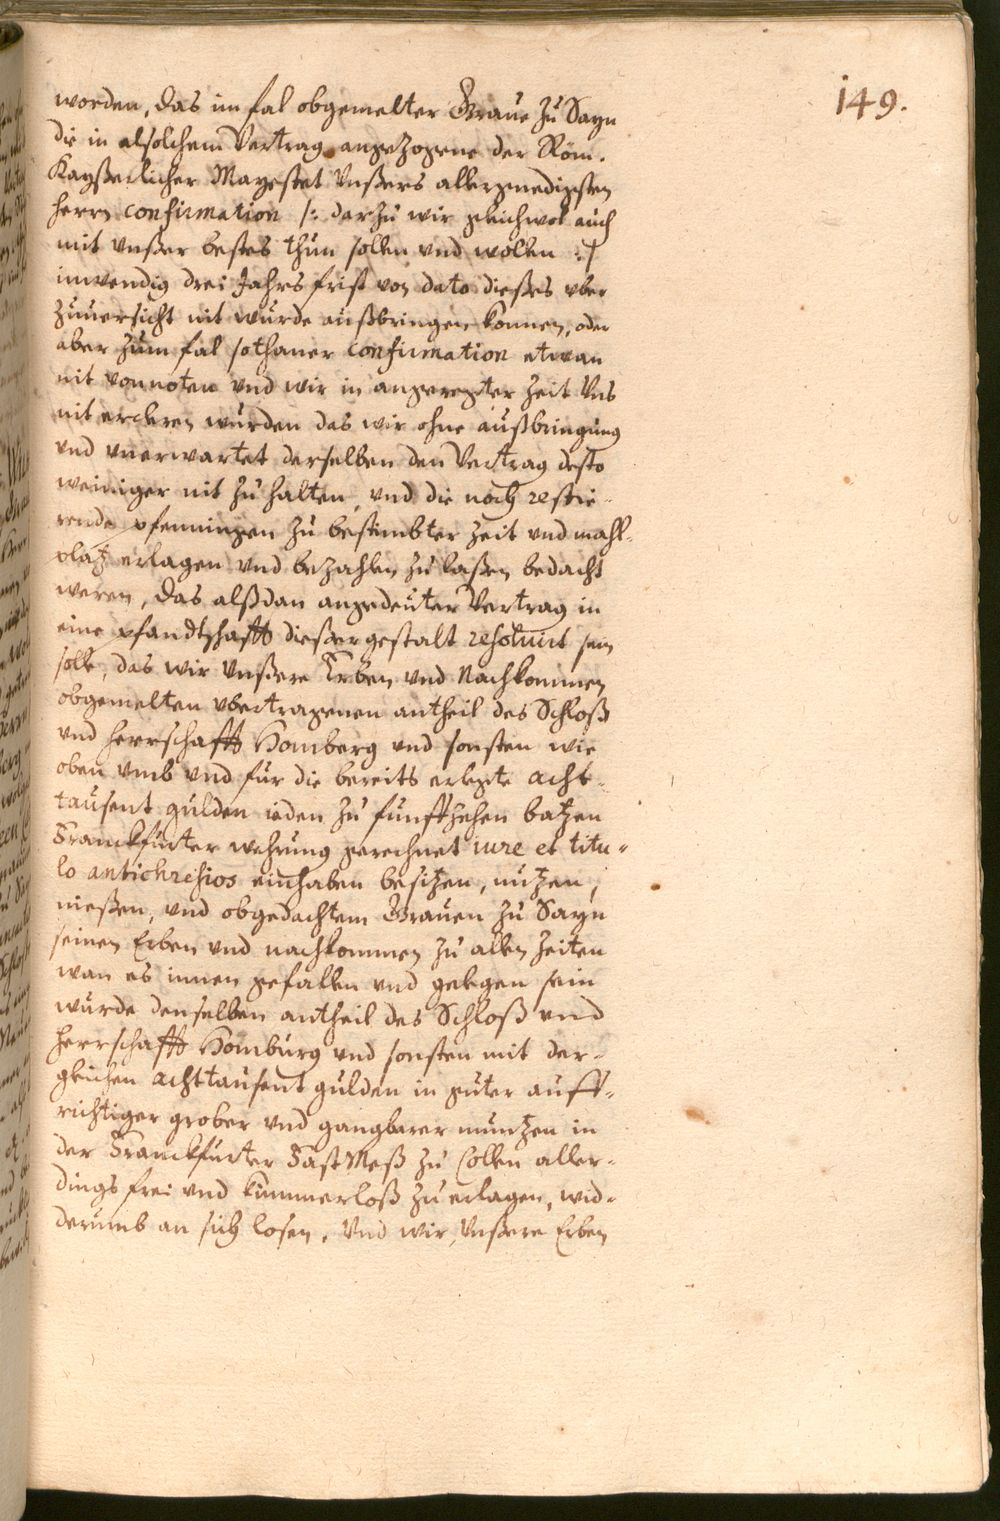 149.
worden, das im fal obgemelter Graue zu Sayn
die in alsolchem Vertrag angezogene der Röm.
Kayßerlicher Mayestet Vnßers allergnedigsten
herrn confirmation /: darzu wir gleichwol auch
mit vnßer bestes thun sollen vnd wollen :/
inwendig drei Jahrs frist von dato dießes vber
zuuersicht nit würde außbringen konnen, oder
aber zum fal sothaner confirmation etwan
nit vonnoten vnd wir in angeregter Zeit Vns
nit ercleren würden das wir ohne außbringung
vnd vnerwartet derselben den Vertrag desto
weiniger nit zu halten, vnd die noch restie-
rende pfenningen zu bestimbter Zeit vnd mahl-
platz erlagen vnd bezahlen zu laßen bedacht
weren, das alßdan angedeuter Vertrag in
eine pfandtschafft dießer gestalt resoluirt sein
solle, das wir Vnßere Erben vnd Nachkommen
obgemelten vbertragenen antheil des Schloß
vnd herrschafft Homberg vnd sonsten wie
oben vmb vnd für die bereits erlegte acht-
tausent gulden ieden zu funffzehen batzen
Franckfurter wehrung gerechnet iure et titu-
lo antichresios einhaben besitzen, nutzen,
nießen, vnd obgedachtem Grauen zu Sayn
seinen Erben vnd nachkommen zu allen Zeiten
wan es innen gefallen vnd gelegen sein
würde denselben antheil des Schloß vnd
herrschafft Homburg vnd sonsten mit der-
gleichen achttausent gulden in guter auff-
richtiger grober vnd gangbarer muntzen in
der Franckfurter Fast Meß zu Collen aller-
dings frei vnd kummerloß zu erlagen, wid-
derumb an sich losen. Vnd wir, Vnßere Erben